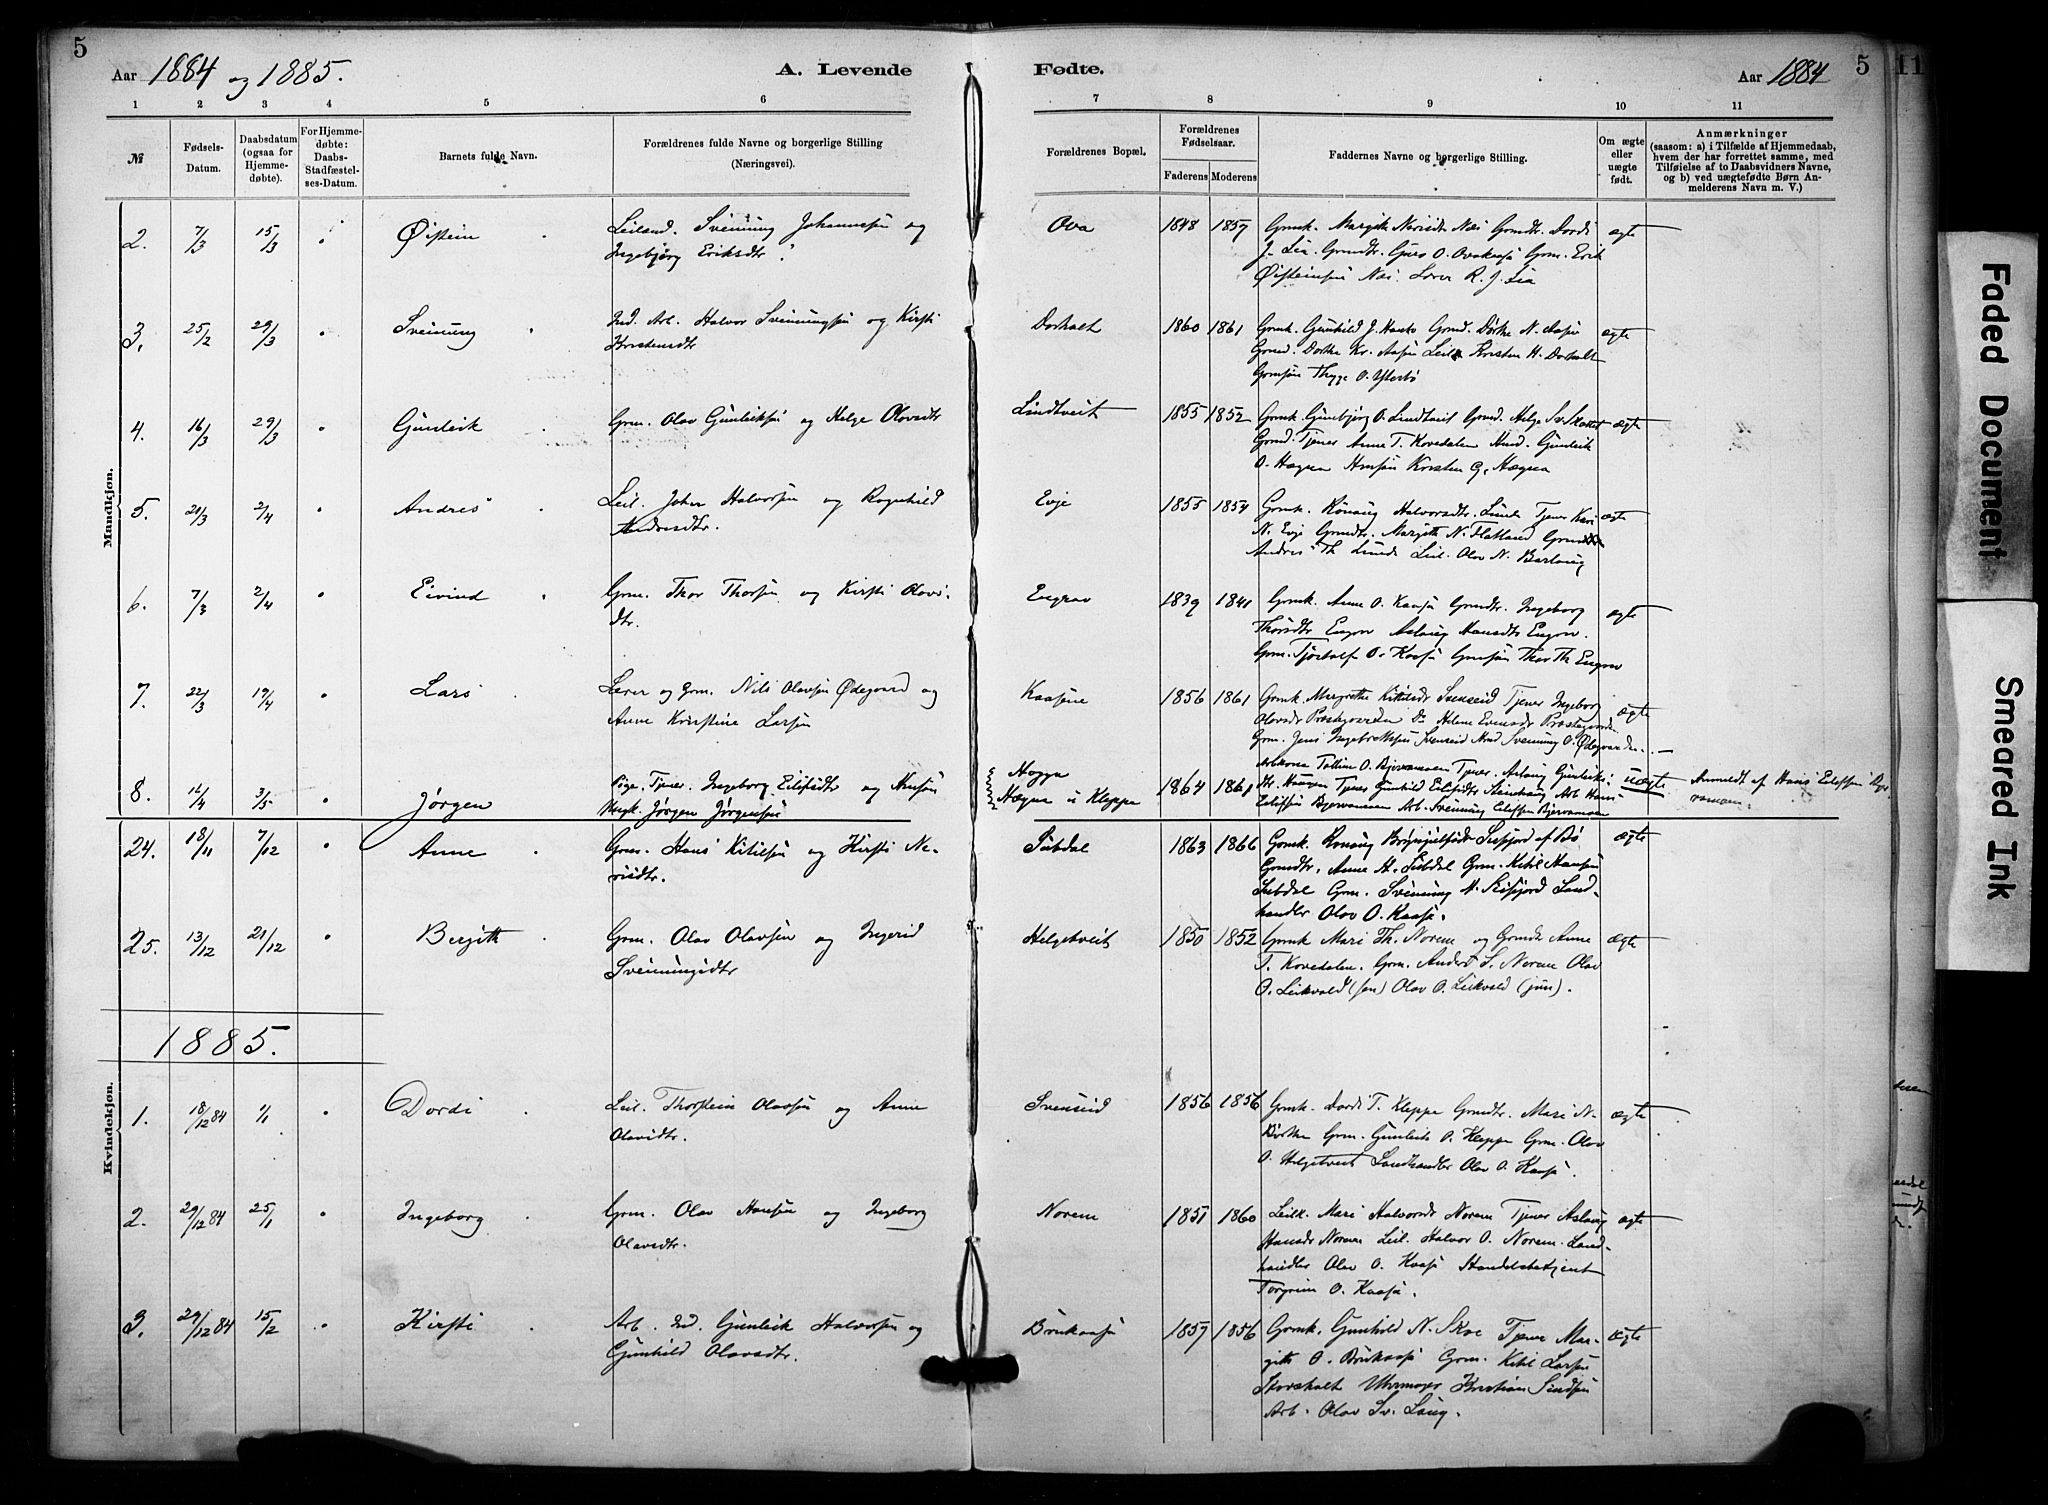 5
Aar 1884 og 1885.
A. Levende
Fødte.
Aar 1884
5
11
1 2 3 4 5 6 7 8 9 10 11
№
Fødsels-
Datum.
Daabsdatum
(ogsaa for
Hjemme-
døbte).
For Hjemme-
døbte:
Daabs-
Stadfæstel-
ses-Datum.
Barnets fulde Navn.
Forældrenes fulde Navne og borgerlige Stilling
(Næringsvei).
Forældrenes Bopæl.
Forældrenes
Fødselsaar.
Faderens Moderens
Faddernes Navne og borgerlige Stilling.
Om ægte
eller
uægte
født.
Anmærkninger
(saasom: a) i Tilfælde af Hjemmedaab,
hvem der har forrettet samme, med
Tilføielse af to Daabsvidners Navne,
og b) ved uægtefødte Børn An-
melderens Navn m. V.)
Mandkjøn.
2. 7/3 15/3 Øistein Leiland. Sveinung Johannessøn og
Ingebjørg Eriksdtr.
Ova 1848 1857 Grmk. Margith Nerisdtr Næs Grmdtr. Dordi ægte
J. Lia Grmdtr. Guro O. Ovakaasa Grm. Erik
Øisteinsøn Næs Lærer R. J. Lia
3. 25/2 29/3 Sveinung Ind. Arb. Halvor Sveinungsøn og Kirsti
Kristensdtr
Dorholt 1860 1861 Grmk. Gunhild J. Grmd. Dorthe N. Aase ægte
Grmd. Dorthe Kr. Aase Leil. Kristen H. Dorholt
Grmsøn Thygge O. Ytterbø
4. 16/3 29/3 Gunleik Grm. Olav Gunleiksøn og Helge Olavsdtr
Lindtveit 1855 1852 Grmk. Gunbjørg O. Lindtveit Grmd. Helge Sv. ægte
Grmd. Tjener Anne T. Kovedalen Hmd. Gunleik
O. Hægna Hmsøn Kristen G. Hægna
5. 20/3 2/4 Andres Leil. John Halvorsøn og Ragnhild
Andresdtr.
Evje 1855 1854 Grmk. Rønaug Halvorsdtr. Lunde Tjener Kari ægte
N. Evje Grmdtr. Margith N. Flatland Grm
Andres Th. Lunde Leil. Olav N. Barlaug
6. 7/3 2/4 Eivind Grm. Thor Thorsøn og Kirsti Olavs-
dtr.
Engrav 1839 1841 Grmk. Anne O. Kaasa Grmdtr. Ingeborg ægte
Thorsdtr Engrav Aslaug Hansdtr Engrav.
Grm. Tjostolf O. Kaasa Grmsøn Thor Th. Engrav
7. 22/3 19/4 Lars Lærer og Grm. Nils Olavsøn Ødegaard og
Anne Kristine Larsøn
Kaasene 1856 1861 Grmk. Margrethe Kittilsdr Svenseid Tjener Ingeborg ægte
Olavsdr Præstegaarden Do Helene Evensdr Præstegaarden
Grm. Jens Ingebretsøn Svenseid Hmd Sveinung O. Ødegaarden
8. 16/4 3/5 Jørgen Pige. Tjener. Ingeborg Eilefsdtr og Hmsøn
Ungk. Jørgen Jørgensøn
Hogga
Hægna u Kleppe
1864 1861 Tolline O. Bjervamoen Tjener. Aslaug Gunleiks- uægte Anmeldt af Hans Eilefsen Bjer
dtr. Haugen Tjener Gunhild Eilefsdtr Steinhaug Arb. Hans vamoen.
Eilefsøn Bjervamoen Arb. Sveinung Eilefsøn Bjervamoen
24. 18/11 7/12 Anne Grm. Hans Kitilsøn og Kirsti Ne-
risdtr.
Subdal 1863 1866 Grmk. Rønaug Brynjulfsdtr Seifjord af Bø ægte
Grmdtr. Anne H. Subdal Grm. Kitil Hansøn
Subdal Grm. Sveinung N. Seifjord Land-
handler Olav O. Kaasa.
25. 13/12 21/12 Bergith Grm. Olav Olavsøn og Ingerid
Sveinungsdtr
Helgetveit 1850 1852 Grmk Mari Th. Norem og Grmdtr Anne ægte
T. Kovedalen. Grm. Anders S. Norem Olav
O. Leikvold (sen) Olav O. Leikvold (jun).
1885.
Kvindekjøn.
1. 18/12 84 1/1 Dordi Leil. Thorstein Olavsøn og Anne
Olavsdtr.
Svenseid 1856 1856 Grmk. Dordi T. Kleppe Grmdtr. Mari N. ægte
Grm. Gunleik O. Kleppe Grm. Olav
O. Helgetveit Landhandler Olav O. Kaasa.
2. 29/12 84 25/1 Ingeborg Grm. Olav Hansøn og Ingeborg
Olavsdtr.
Norem 1851 1860 Leilk. Mari Halvorsdr Norem Tjener Aslaug ægte
Hansdr Norem Leil. Halvor O. Norem. Land-
handler Olav O. Kaasa Handelsbetjent
Torgrim O. Kaasa.
3. 29/12 84 15/2 Kirsti Arb. Ind. Gunleik Halvorsøn og
Gunhild Olavsdtr.
Brukaasa 1857 1856 Grmk. Gunhild N. Skoe Tjener Mar- ægte
gith O. Brukaasa Grm. Kitil Larsøn
Storeholt Uhrmager Kristian Sindsøn
Arb. Olav Sv. Laug.
Faded Document
Smeared Ink